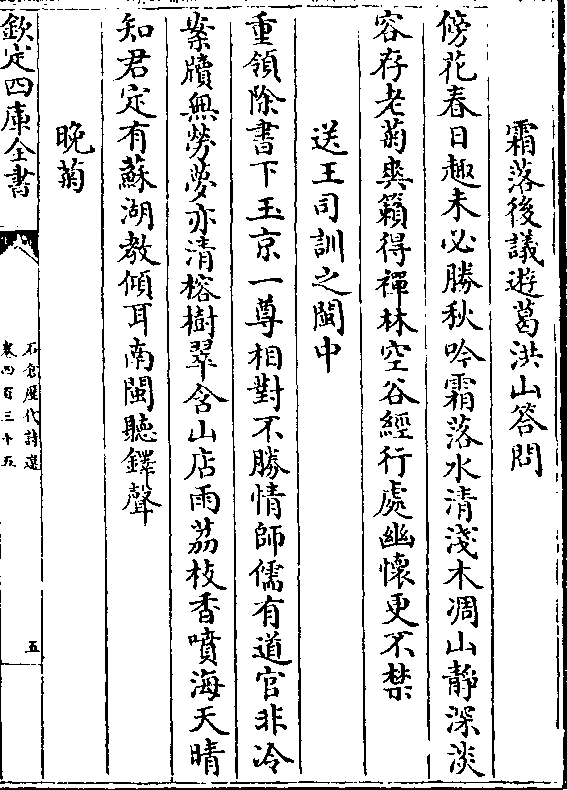 霜落後議遊葛洪山答問
傍花春日趣未必勝秋吟霜落水清淺木凋山靜深淡
容存老菊爽籟得禪林空谷經行處幽懷更不禁
送王司訓之閩中
重領除書下玉京一尊相對不勝情師儒有道官非冷
案牘無勞夢亦清榕樹翠含山店雨荔枝香噴海天晴
知君定有蘇湖教傾耳南閩聽鐸聲
晚菊
欽定四庫全書
石倉歷代詩選
卷四百三十五
五